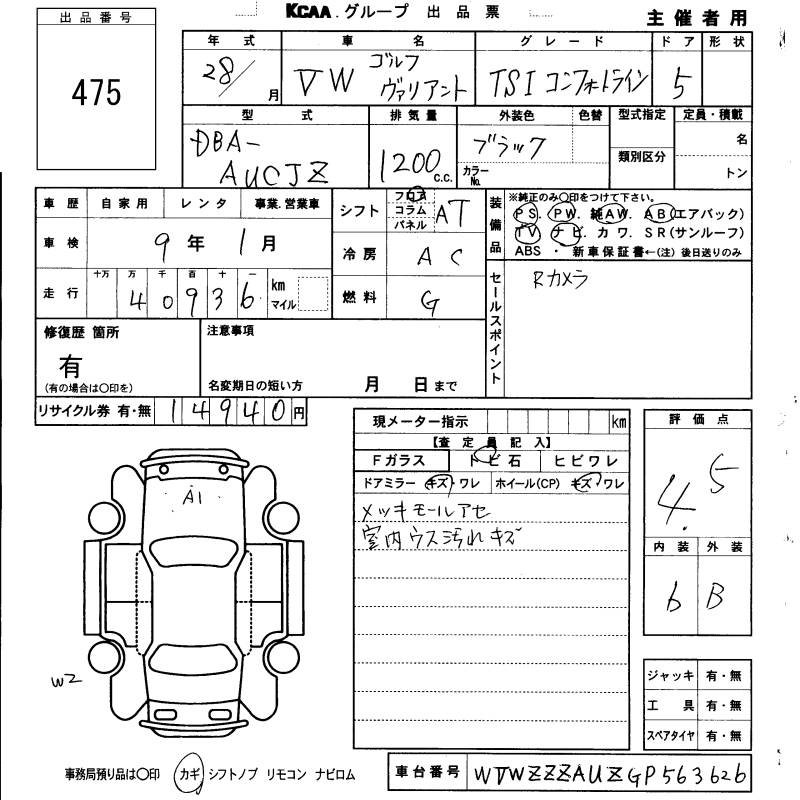 KCAA グループ 出品票
主催者用
出品番号
475
年式 車名 グレード ドア 形状
28/ 月 VW ゴルフ ヴァリアント TSI コンフォートライン 5
型式 排気量 外装色 色替 型式指定 定員・積載
DBA-AUCJZ 1200 c.c. ブラック カラーNo. 類別区分 名 トン
車歴 自家用 レンタ 事業.営業車
車検 9年 1月
走行 十万 万 千 百 十 一
40936 km マイル
シフト フロア コラム パネル AT
冷房 AC
燃料 G
装備品 ※純正のみ○印をつけて下さい。
PS. PW. 純AW. AB(エアバック)
TV ナビ. カワ. SR(サンルーフ)
ABS ・ 新車保証書←(注)後日送りのみ
セールスポイント
Rカメラ
修復歴 箇所
有
(有の場合は○印を)
注意事項
名変期日の短い方 月 日まで
リサイクル券 有・無 14940円
現メーター指示 km
【査定員記入】
Fガラス トビ石 ヒビワレ
ドアミラー キズ ワレ ホイール(CP) キズ ワレ
メッキモールアセ
室内ウス汚れキズ
評価点
4.5
内装 外装
6 B
A1
W2
ジャッキ 有・無
工具 有・無
スペアタイヤ 有・無
事務局預り品は○印 カギ シフトノブ リモコン ナビロム
車台番号 WVWZZZAUZGP563626